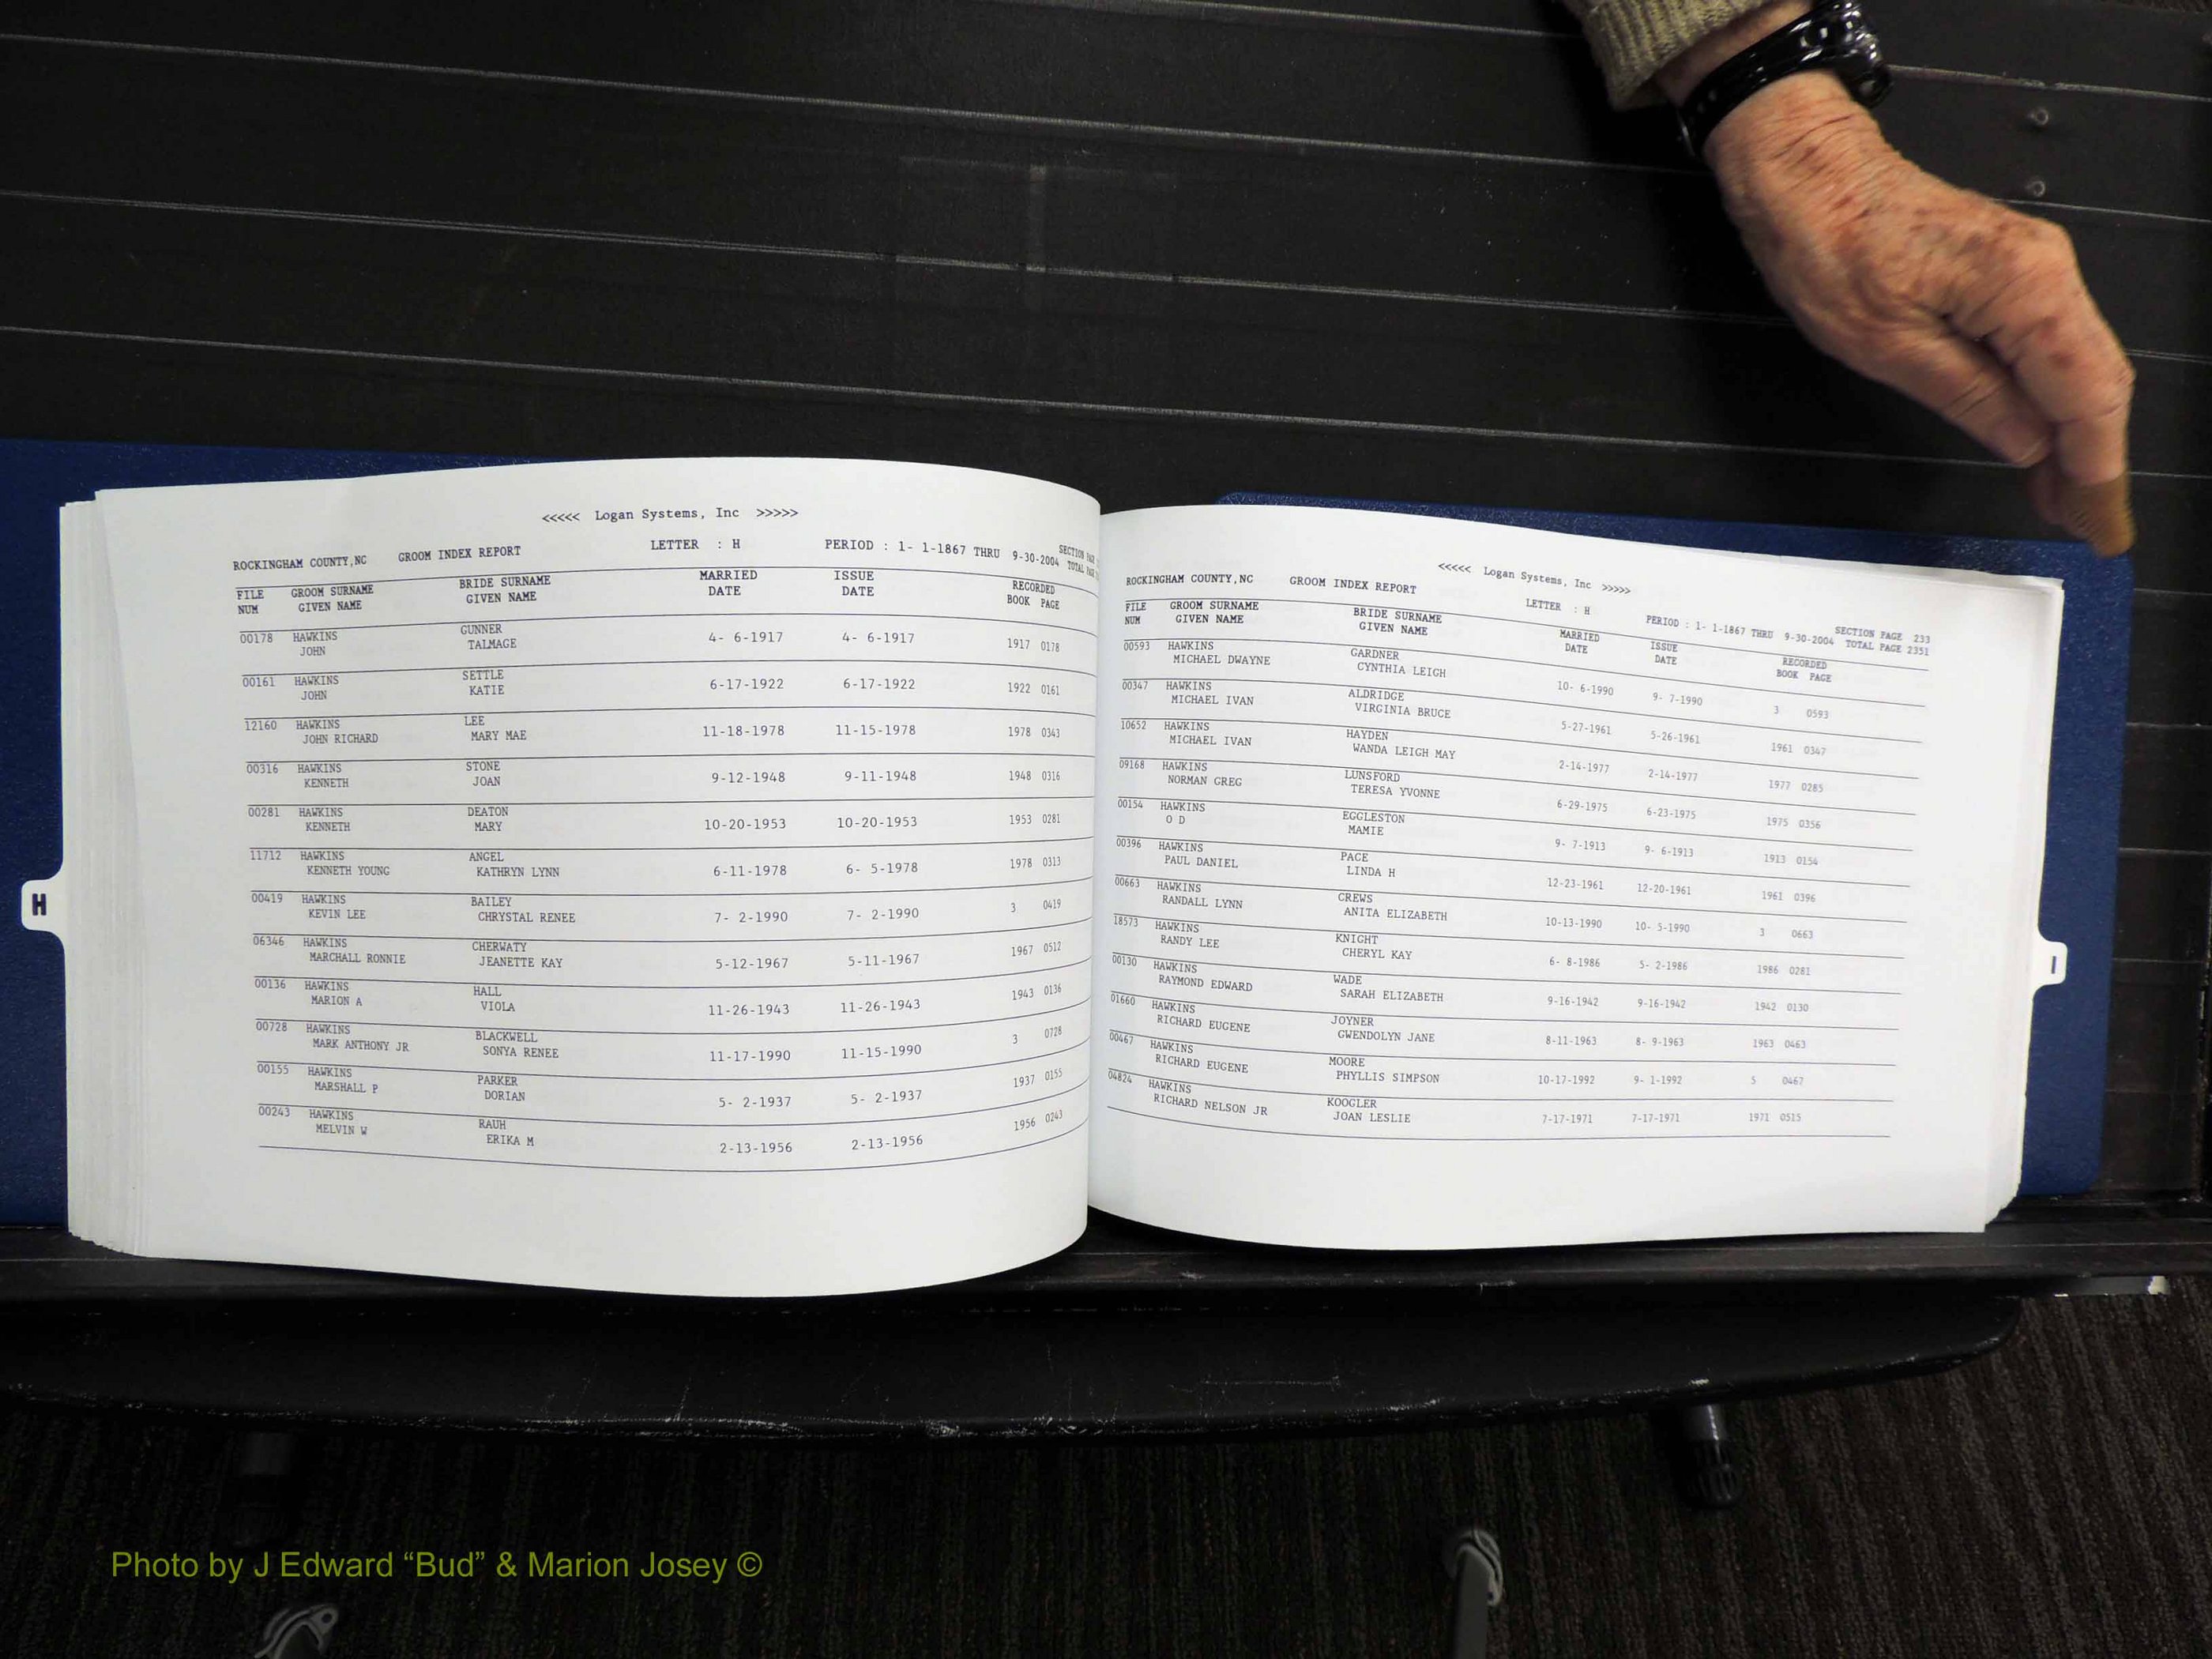 <<<<< Logan Systems, Inc >>>>>
ROCKINGHAM COUNTY,NC GROOM INDEX REPORT LETTER : H PERIOD : 1- 1-1867 THRU 9-30-2004 SECTION
TOTAL
FILE GROOM SURNAME BRIDE SURNAME MARRIED ISSUE RECORDED
NUM GIVEN NAME GIVEN NAME DATE DATE BOOK PAGE
00178 HAWKINS GUNNER 4- 6-1917 4- 6-1917 1917 0178
JOHN TALMAGE
00161 HAWKINS SETTLE 6-17-1922 6-17-1922 1922 0161
JOHN KATIE
12160 HAWKINS LEE 11-18-1978 11-15-1978 1978 0343
JOHN RICHARD MARY MAE
00316 HAWKINS STONE 9-12-1948 9-11-1948 1948 0316
KENNETH JOAN
00281 HAWKINS DEATON 10-20-1953 10-20-1953 1953 0281
KENNETH MARY
11712 HAWKINS ANGEL 6-11-1978 6- 5-1978 1978 0313
KENNETH YOUNG KATHRYN LYNN
00419 HAWKINS BAILEY 7- 2-1990 7- 2-1990 3 0419
KEVIN LEE CHRYSTAL RENEE
06346 HAWKINS CHERWATY 5-12-1967 5-11-1967 1967 0512
MARCHALL RONNIE JEANETTE KAY
00136 HAWKINS HALL 11-26-1943 11-26-1943 1943 0136
MARION A VIOLA
00728 HAWKINS BLACKWELL 11-17-1990 11-15-1990 3 0728
MARK ANTHONY JR SONYA RENEE
00155 HAWKINS PARKER 5- 2-1937 5- 2-1937 1937 0155
MARSHALL P DORIAN
00243 HAWKINS RAUH 2-13-1956 2-13-1956 1956 0243
MELVIN W ERIKA M
H
<<<<< Logan Systems, Inc >>>>>
ROCKINGHAM COUNTY,NC GROOM INDEX REPORT LETTER : H PERIOD : 1- 1-1867 THRU 9-30-2004 SECTION PAGE 233
TOTAL PAGE 2351
FILE GROOM SURNAME BRIDE SURNAME MARRIED ISSUE RECORDED
NUM GIVEN NAME GIVEN NAME DATE DATE BOOK PAGE
00593 HAWKINS GARDNER 10- 6-1990 9- 7-1990 3 0593
MICHAEL DWAYNE CYNTHIA LEIGH
00347 HAWKINS ALDRIDGE 5-27-1961 5-26-1961 1961 0347
MICHAEL IVAN VIRGINIA BRUCE
10652 HAWKINS HAYDEN 2-14-1977 2-14-1977 1977 0285
MICHAEL IVAN WANDA LEIGH MAY
09168 HAWKINS LUNSFORD 6-29-1975 6-23-1975 1975 0356
NORMAN GREG TERESA YVONNE
00154 HAWKINS EGGLESTON 9- 7-1913 9- 6-1913 1913 0154
O D MAMIE
00396 HAWKINS PACE 12-23-1961 12-20-1961 1961 0396
PAUL DANIEL LINDA H
00663 HAWKINS CREWS 10-13-1990 10- 5-1990 3 0663
RANDALL LYNN ANITA ELIZABETH
18573 HAWKINS KNIGHT 6- 8-1986 5- 2-1986 1986 0281
RANDY LEE CHERYL KAY
00130 HAWKINS WADE 9-16-1942 9-16-1942 1942 0130
RAYMOND EDWARD SARAH ELIZABETH
01660 HAWKINS JOYNER 8-11-1963 8- 9-1963 1963 0463
RICHARD EUGENE GWENDOLYN JANE
00467 HAWKINS MOORE 10-17-1992 9- 1-1992 5 0467
RICHARD EUGENE PHYLLIS SIMPSON
04824 HAWKINS KOOGLER 7-17-1971 7-17-1971 1971 0515
RICHARD NELSON JR JOAN LESLIE
I
Photo by J Edward “Bud” & Marion Josey ©